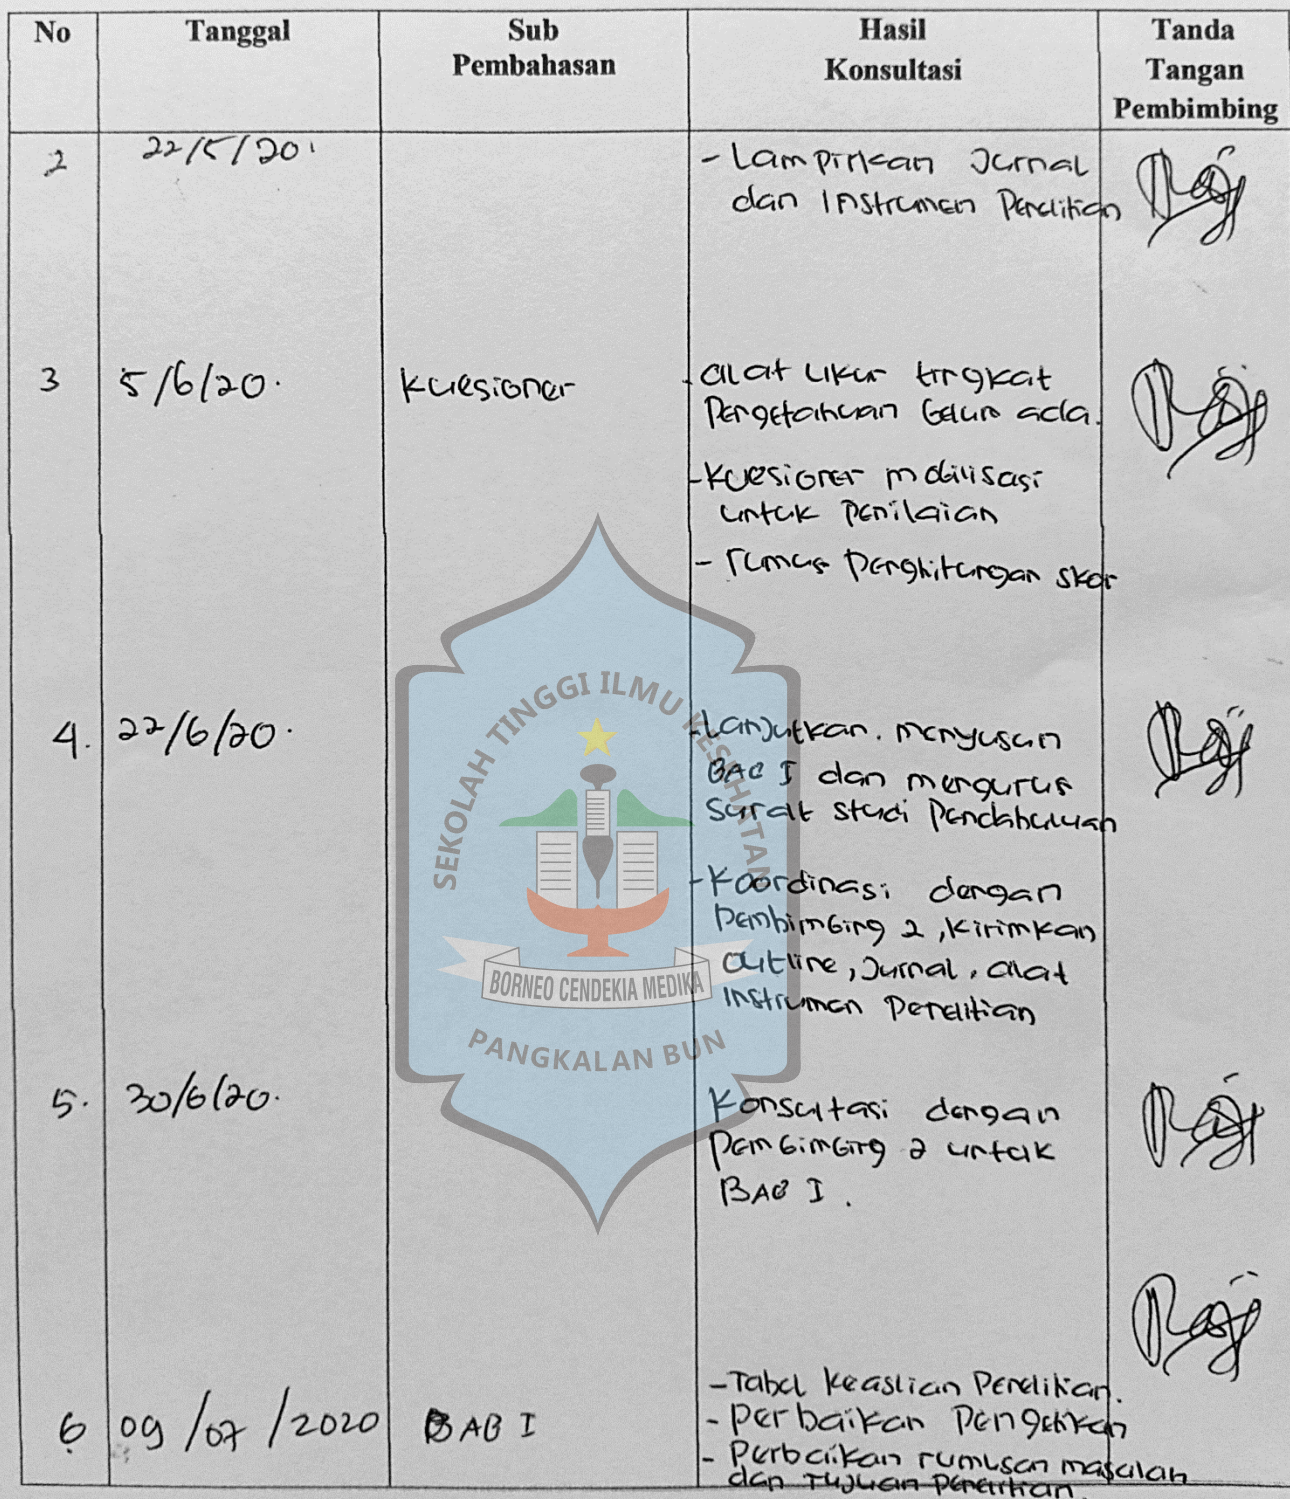 No Tanggal Sub Pembahasan Hasil Konsultasi Tanda Tangan Pembimbing
2 22/5/20. - Lampirkan Jurnal
dan Instrumen Penelitian
3 5/6/20. Kuesioner - alat ukur tingkat
Pengetahuan belum ada.
- Kuesioner mobilisasi
untuk Penilaian
- rumus Penghitungan skor
4. 22/6/20. - Lanjutkan. menyusun
BAB I dan mengurus
Surat studi Pendahuluan
- Koordinasi dengan
Pembimbing 2, Kirimkan
Outline, Jurnal, alat
Instrumen Penelitian
5. 30/6/20. Konsultasi dengan
Pembimbing 2 untuk
BAB I.
6 09/07/2020 BAB I - Tabel Keaslian Penelitian.
- Perbaikan Pengetikan
- Perbaikan rumusan masalah
dan Tujuan Penelitian.
SEKOLAH TINGGI ILMU KESEHATAN
BORNEO CENDEKIA MEDIKA
PANGKALAN BUN